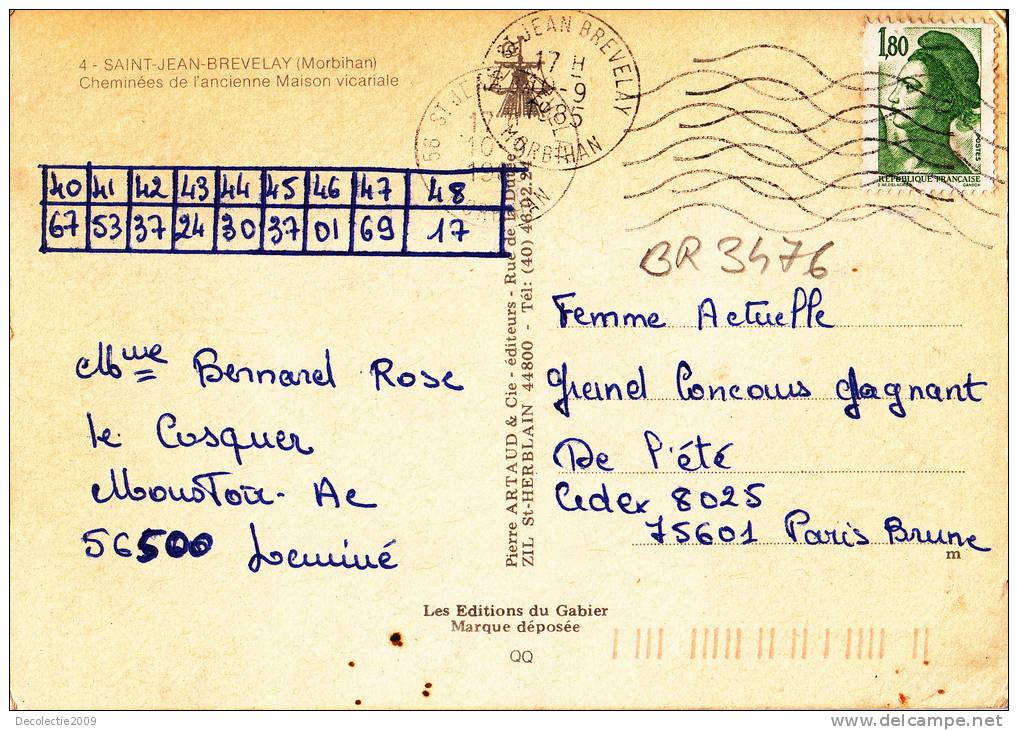 4 - SAINT-JEAN-BREVELAY (Morbihan)
Cheminées de l'ancienne Maison vicariale
ST JEAN BREVELAY
17 H
-9
1985
MORBIHAN
56 ST JE
17
10
1,80
POSTES
REPUBLIQUE FRANÇAISE
40 41 42 43 44 45 46 47 48
67 53 37 24 30 37 01 69 17
BR 3476
Mme Bernard Rose
le Cosquer
Moustoir-Ac
56500 Locminé
Pierre ARTAUD & Cie - éditeurs - Rue de la
ZIL St-HERBLAIN 44800 - Tél: (40) 46.02.24
Femme Actuelle
Grand Concours Gagnant
De l'été
Cedex 8025
75601 Paris Brune
m
Les Editions du Gabier
Marque déposée
QQ
Decolectie2009
www.delcampe.net